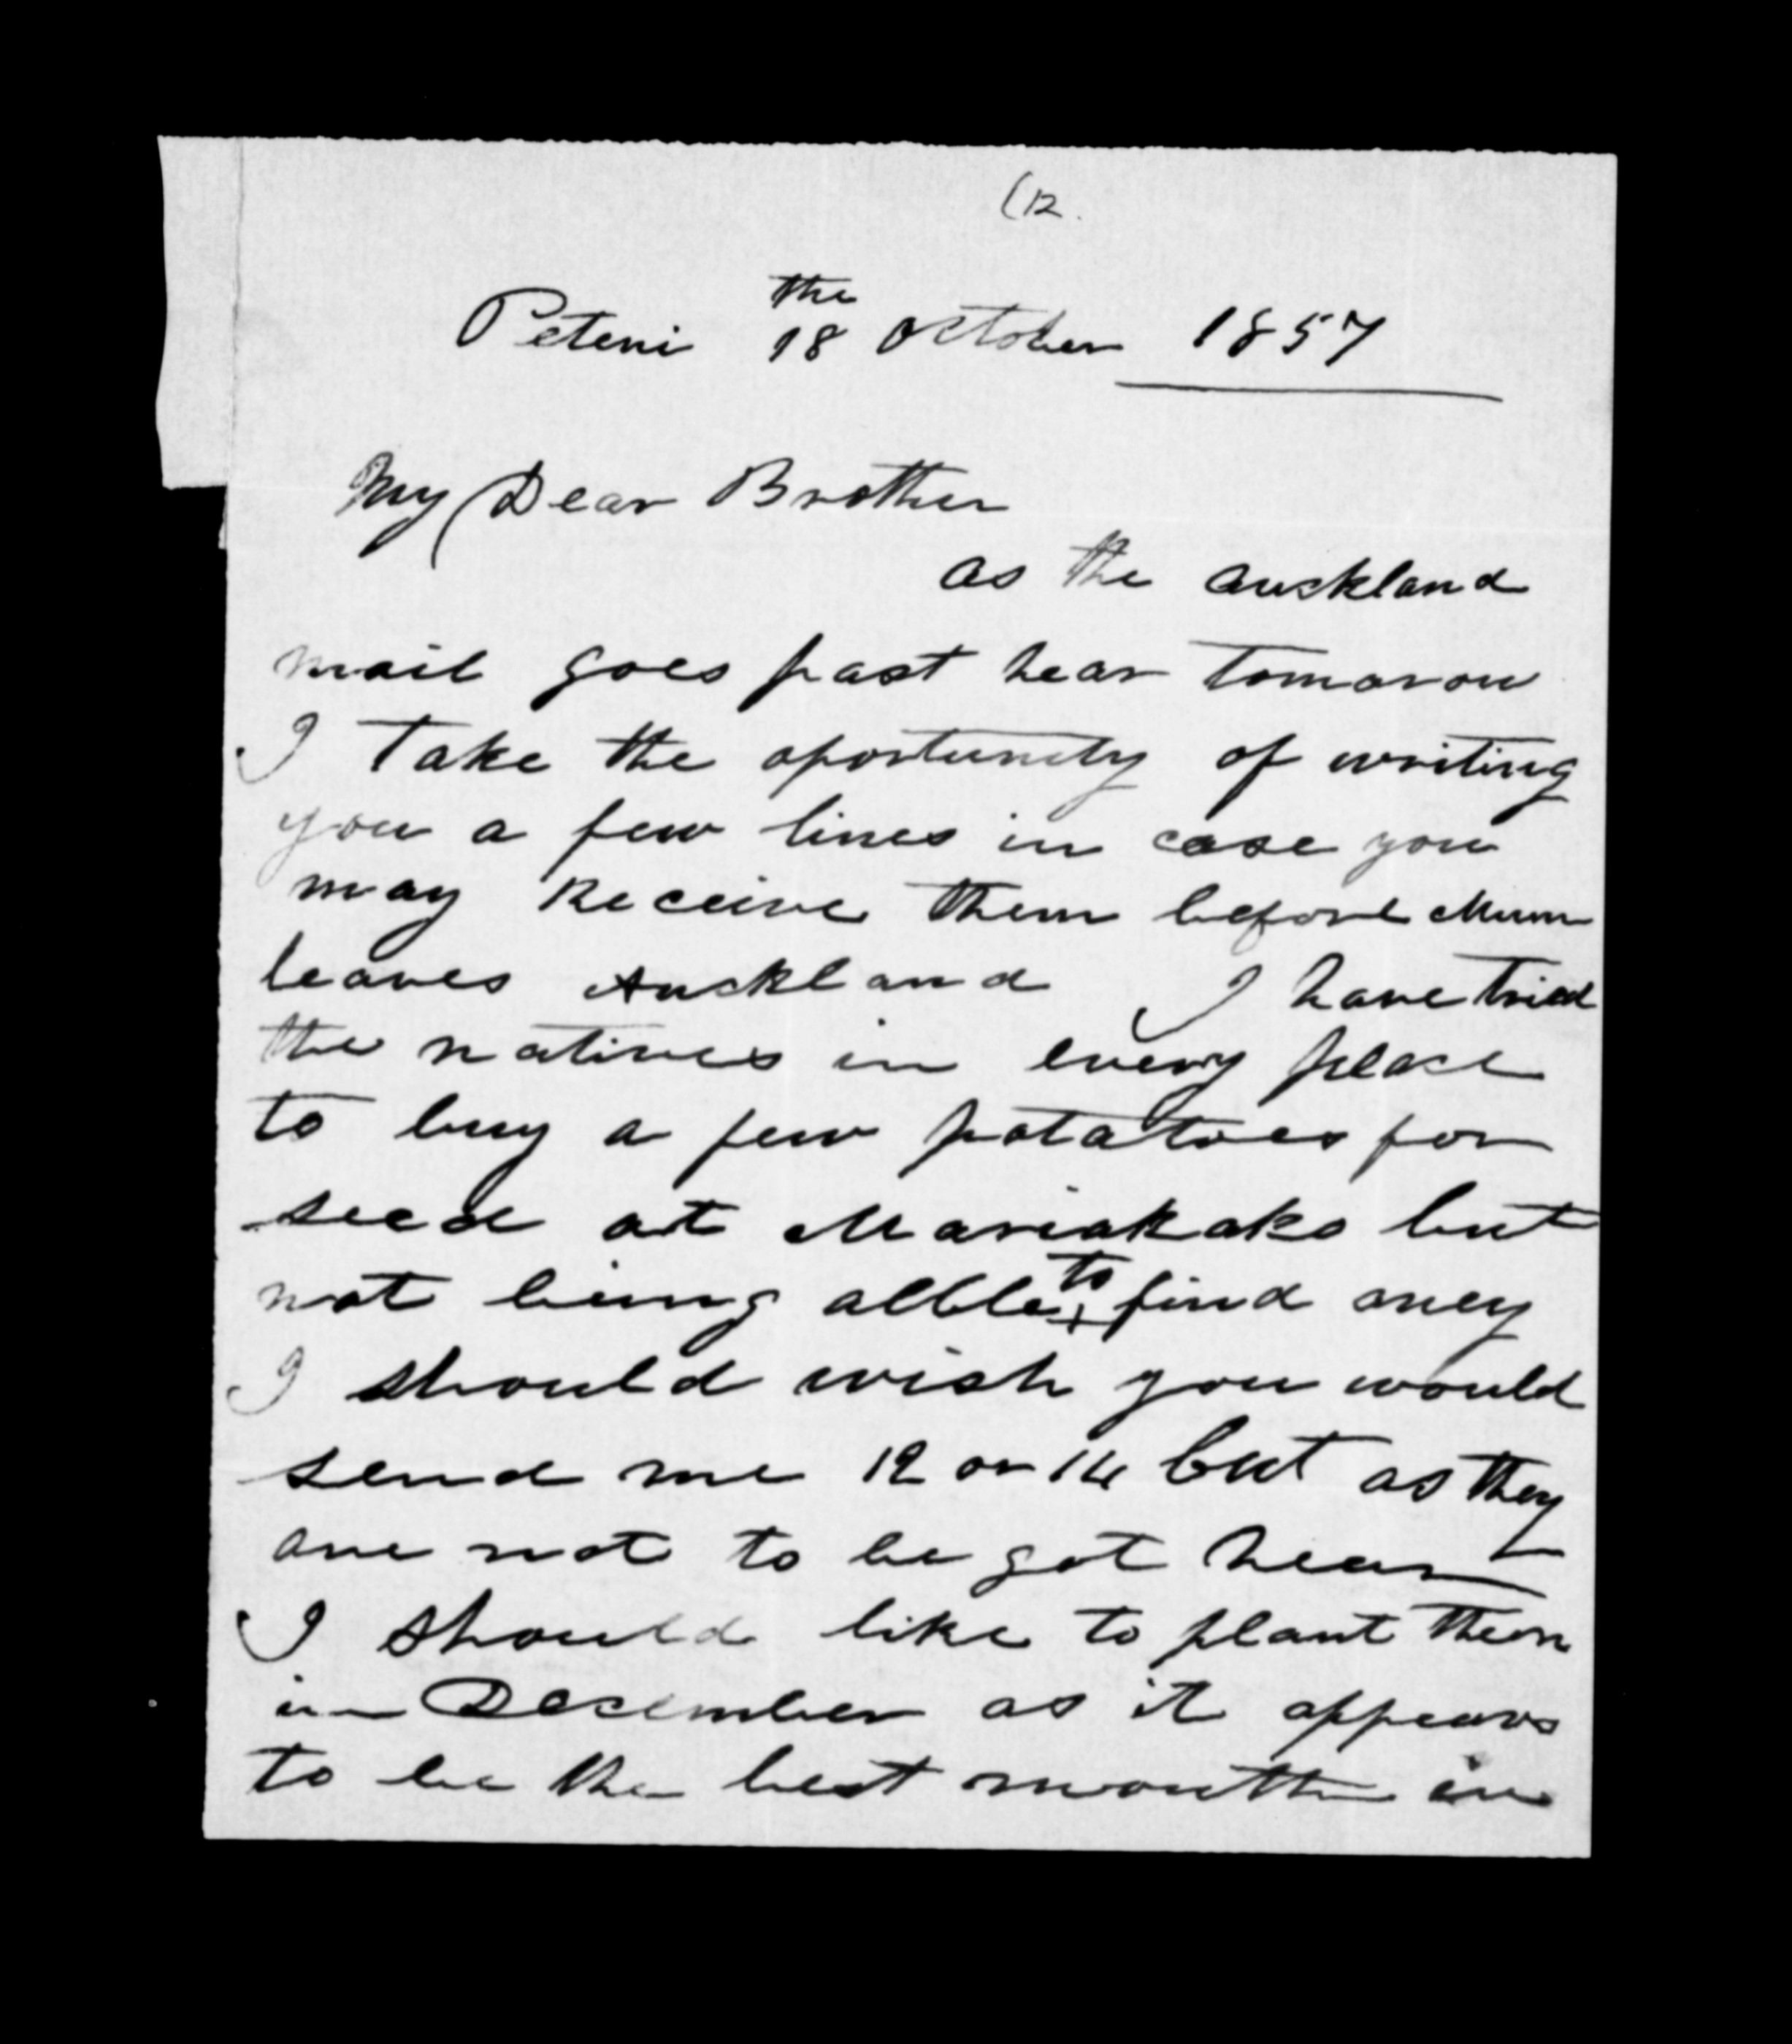 (12.
Peteni the 18 October 1857
My Dear Brother
as the Auckland
mail goes past hear tomorow
I take the oportunity of writing
you a few lines in case you
may Receive them before Munn
leaves Auckland I have tried
the natives in every place
to buy a few potatoes for
seed at Mariakako but
not being allble to find aney
I should wish you would
send me 12 or 14 Cwt as they
are not to be got hear
I should like to plant them
in December as it appears
to be the best month in